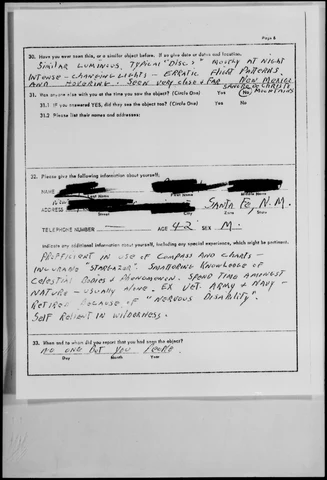 Page 6
30. Have you ever seen this, or a similar object before. If so give date or dates and location.
SIMILAR LUMINUS, TYPICAL "DISCS" MOSTLY AT NIGHT
INTENSE - CHANGING LIGHTS - ERRATIC FLIGHT PATTERNS.
AND HOVERING. SEEN VERY CLOSE & FAR NEW MEXICO
SANGRE DE CHRISTI
31. Was anyone else with you at the time you saw the object? (Circle One) Yes No MOUNTAINS
31.1 IF you answered YES, did they see the object too? (Circle One) Yes No
31.2 Please list their names and addresses:
32. Please give the following information about yourself:
NAME
Last Name First Name Middle Name
ADDRESS SANTA FE, N.M.
Street City Zone State
TELEPHONE NUMBER — AGE 42 SEX M.
Indicate any additional information about yourself, including any special experience, which might be pertinent.
PROFFICIENT IN USE OF COMPASS AND CHARTS -
"STARGAZOR". SMATTERING KNOWLEDGE OF
CELESTIAL BODIES & PHONOMENON. SPEND TIME AMONGST
NATURE - USUALLY ALONE. EX VET. ARMY & NAVY -
RETIRED BECAUSE OF "NERVOUS DISABILITY".
SELF RELIENT IN WILDERNESS.
33. When and to whom did you report that you had seen the object?
NO ONE BUT YOU PEOPLE.
Day Month Year